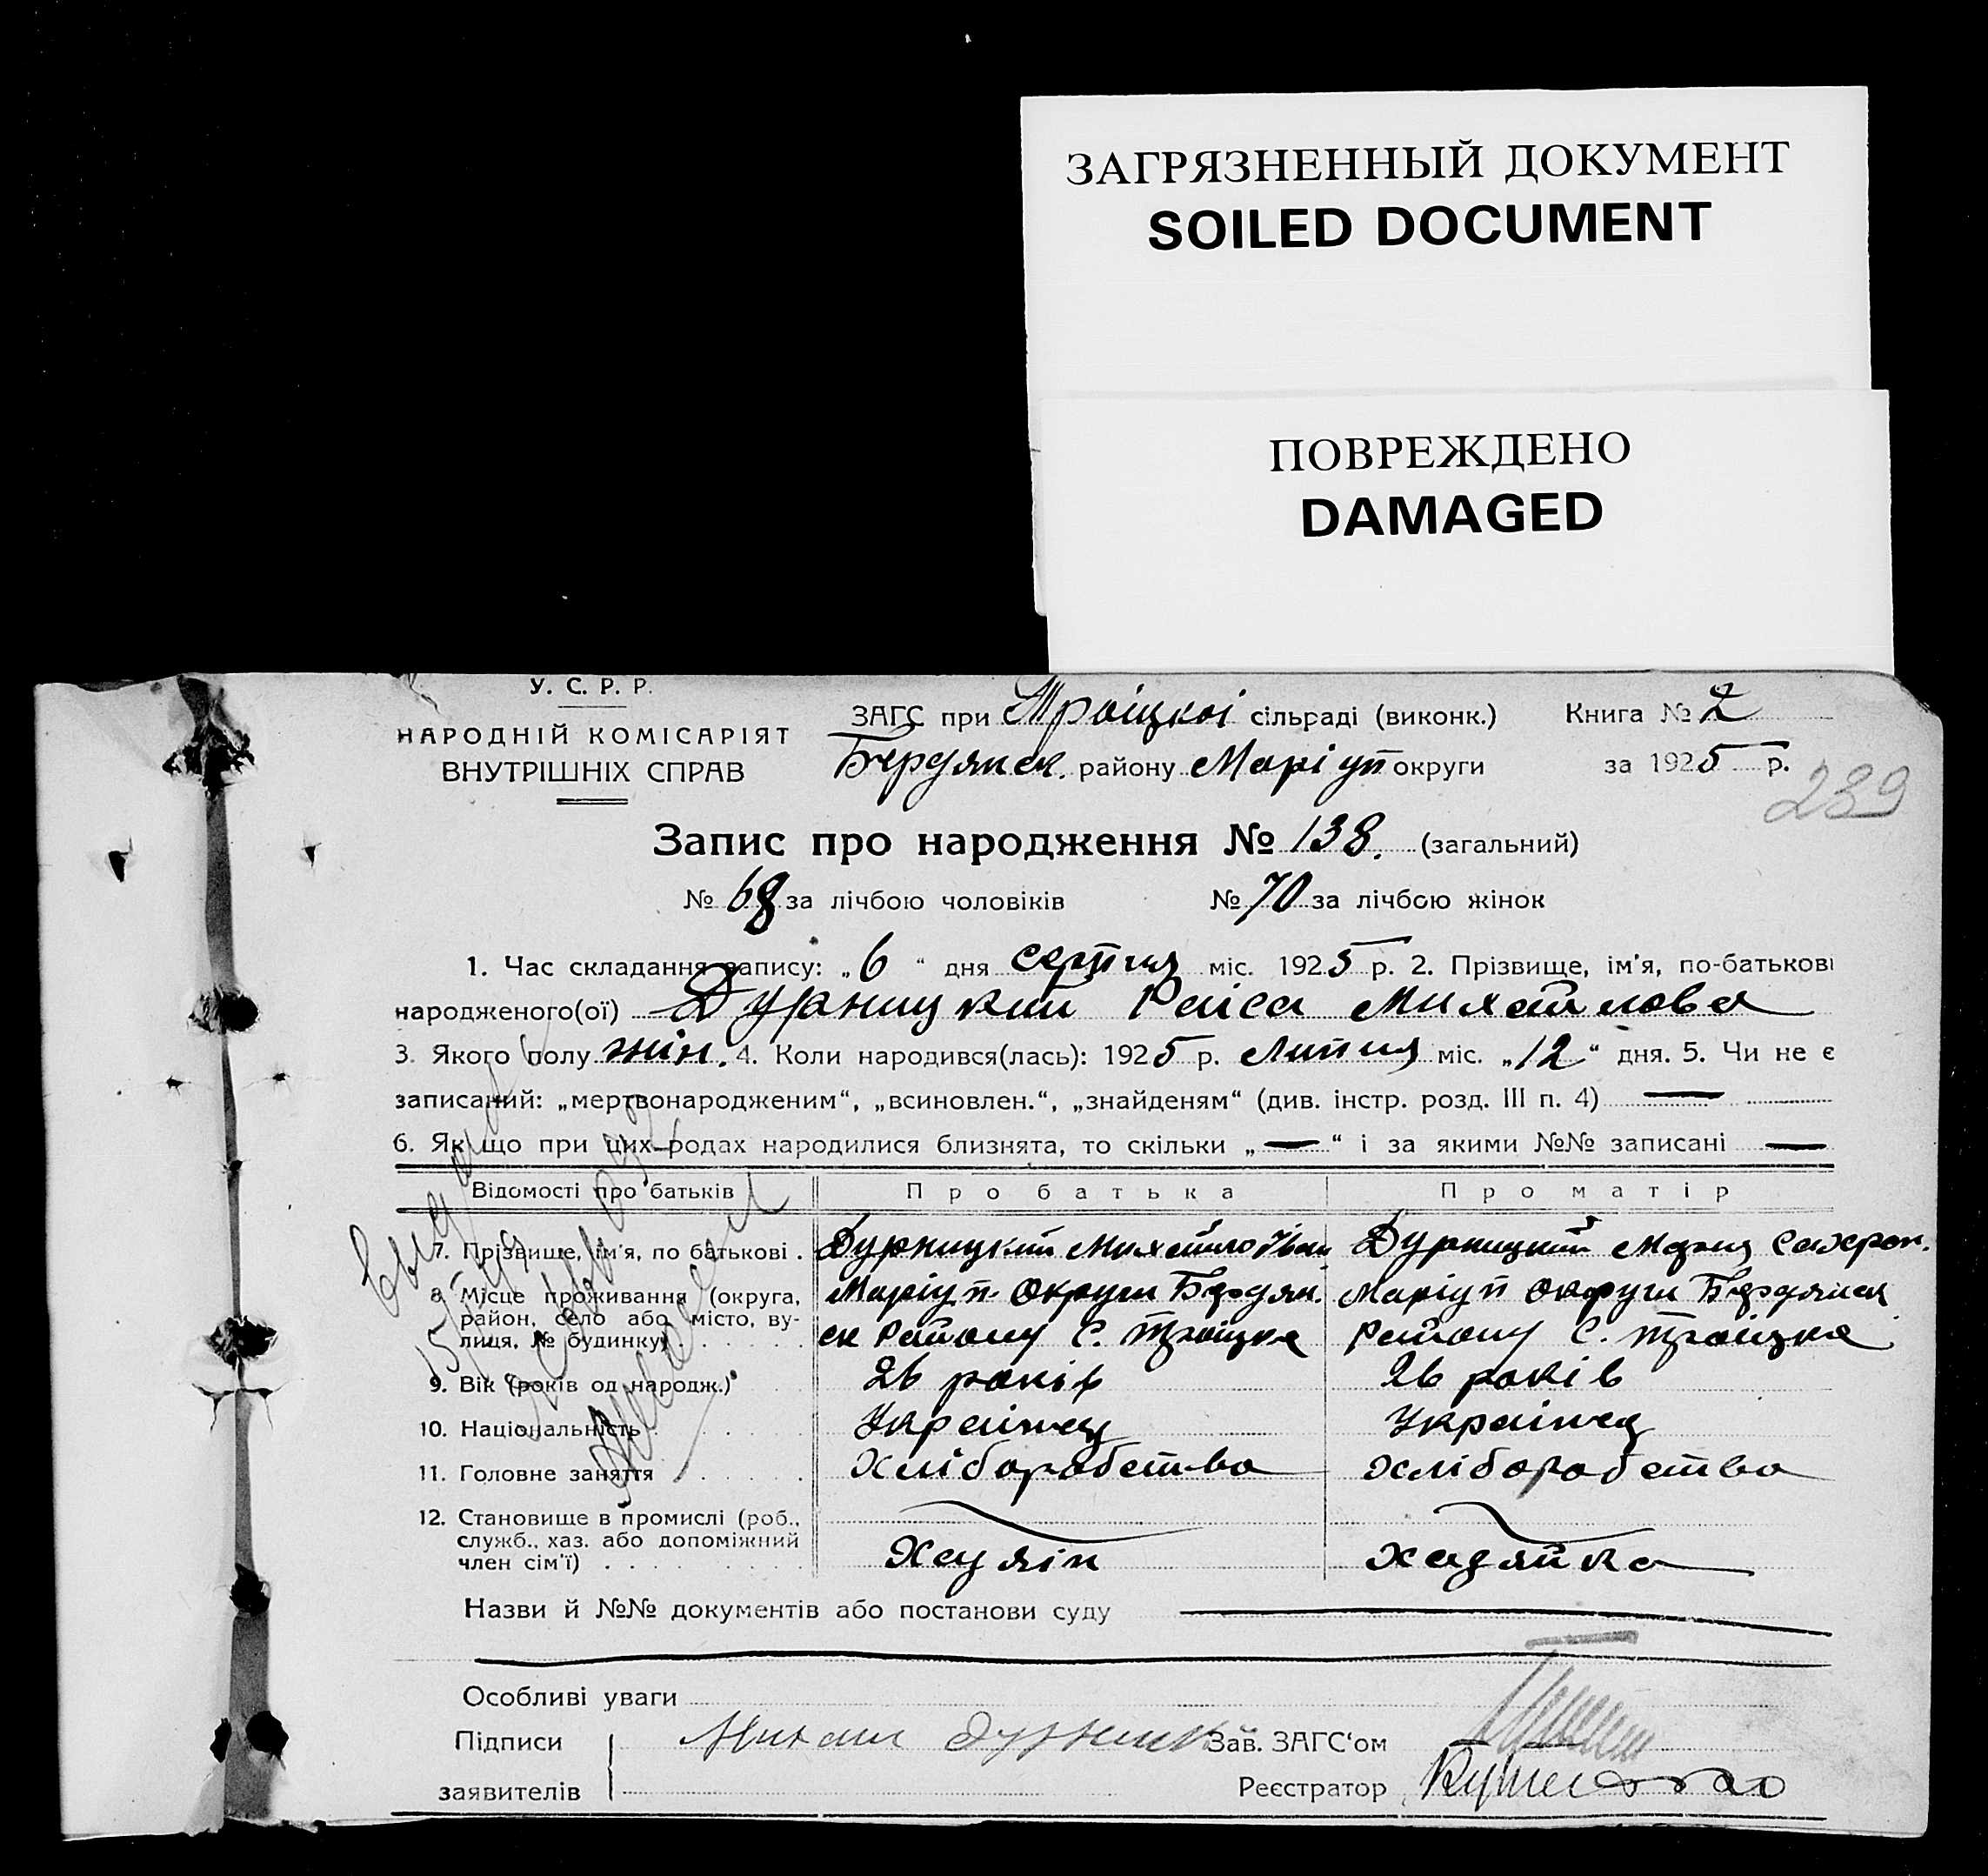 ЗАГРЯЗНЕННЫЙ ДОКУМЕНТ
SOILED DOCUMENT
ПОВРЕЖДЕНО
DAMAGED
У. С. Р. Р.
НАРОДНІЙ КОМІСАРІЯТ
ВНУТРІШНІХ СПРАВ
ЗАГС при Троіцкоі сільраді (виконк.) Книга № 2
Бердянск. району Маріуп округи за 1925 р.
239
Запис про народження № 138. (загальний)
№ 68 за лічбою чоловіків № 70 за лічбою жінок
1. Час складання запису: „6“ дня серпня міс. 1925 р. 2. Прізвище, ім'я, по-батькові
народженого(ої) Дурницкий Раіса Михайлова
3. Якого полу жін. 4. Коли народився(лась): 1925 р. Липня міс. „12“ дня. 5. Чи не є
записаний: „мертвонародженим“, „всиновлен.“, „знайденям“ (див. інстр. розд. III п. 4) —
6. Як що при цих родах народилися близнята, то скільки „—“ і за якими №№ записані —
Відомості про батьків Про батька Про матір
7. Прізвище, ім'я, по батькові . Дурницкий Михайло Іван Дурницкий Мария Сафрон.
8. Місце проживання (округа, Маріуп округи Бердян. Маріуп округи Бердянск
район, село або місто, ву-
лиця, № будинку) ск Району С. Троіцке Району С. Троіцке
9. Вік (років од народж.) 26 років 26 років
10. Національність Украінец Украінец
11. Головне заняття Хліборобство Хліборобство
12. Становище в промислі (роб.,
служб., хаз. або допоміжний
член сім'ї) Хазяін Хазяйка
Назви й №№ документів або постанови суду
Особливі уваги
Підписи Михаил Дурницк Зав. ЗАГС'ом
заявителів Реєстратор